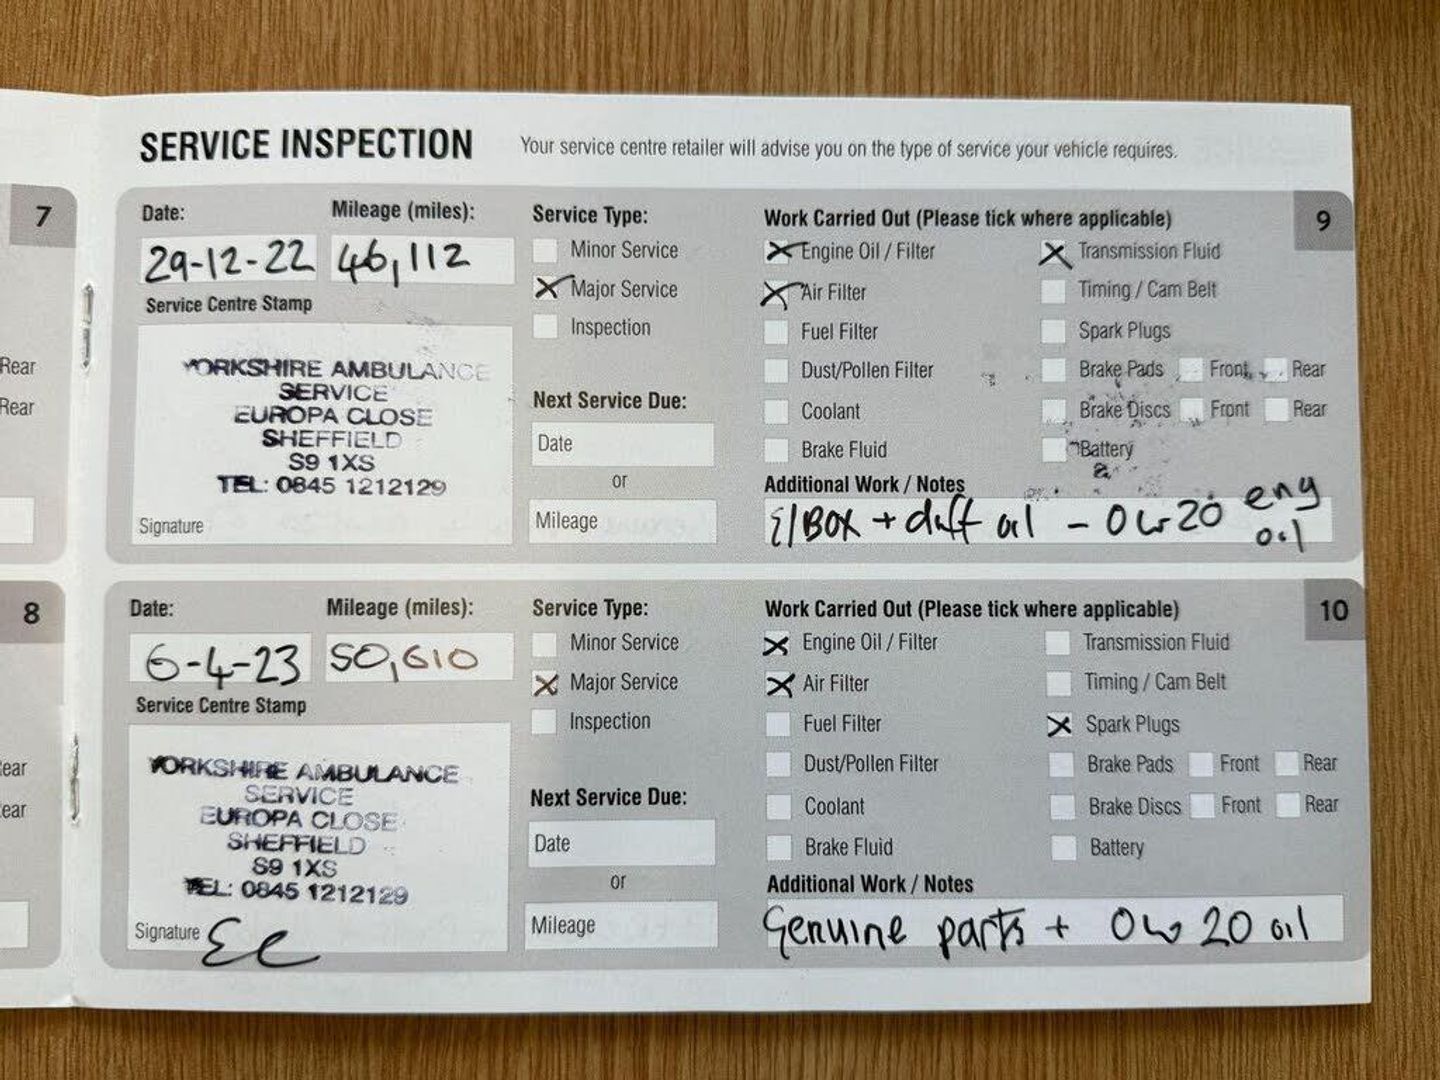 SERVICE INSPECTION
Your service centre retailer will advise you on the type of service your vehicle requires.
7
Rear
Rear
8
ear
ear
9
Date:
Mileage (miles):
29-12-22
46,112
Service Centre Stamp
YORKSHIRE AMBULANCE
SERVICE
EUROPA CLOSE
SHEFFIELD
S9 1XS
TEL: 0845 1212129
Signature
Service Type:
Minor Service
Major Service
Inspection
Next Service Due:
Date
or
Mileage
Work Carried Out (Please tick where applicable)
Engine Oil / Filter
Transmission Fluid
Air Filter
Timing / Cam Belt
Fuel Filter
Spark Plugs
Dust/Pollen Filter
Brake Pads Front Rear
Coolant
Brake Discs Front Rear
Brake Fluid
Battery
Additional Work / Notes
G/BOX + diff oil - 0w20 eng
oil
10
Date:
Mileage (miles):
6-4-23
50,610
Service Centre Stamp
YORKSHIRE AMBULANCE
SERVICE
EUROPA CLOSE
SHEFFIELD
S9 1XS
TEL: 0845 1212129
Signature
Service Type:
Minor Service
Major Service
Inspection
Next Service Due:
Date
or
Mileage
Work Carried Out (Please tick where applicable)
Engine Oil / Filter
Transmission Fluid
Air Filter
Timing / Cam Belt
Fuel Filter
Spark Plugs
Dust/Pollen Filter
Brake Pads Front Rear
Coolant
Brake Discs Front Rear
Brake Fluid
Battery
Additional Work / Notes
Genuine parts + 0w20 oil